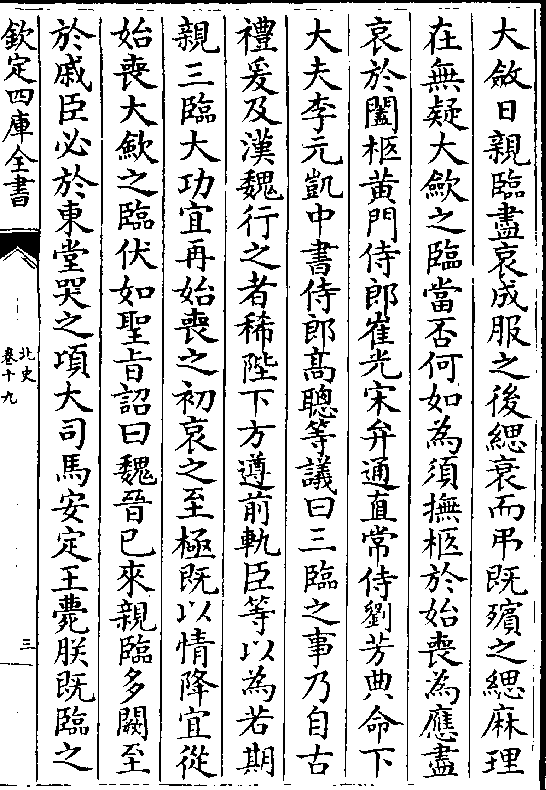 大斂日親臨盡哀成服之後緦衰而弔既殯之緦麻理
在無疑大歛之臨當否何如為須撫柩於始喪為應盡
哀於闔柩黄門侍郎崔光宋弁通直常侍劉芳典命下
大夫李元凱中書侍郎髙聰等議曰三臨之事乃自古
禮爰及漢魏行之者稀陛下方遵前軌臣等以為若期
親三臨大功宜再始喪之初哀之至極既以情降宜從
始喪大歛之臨伏如聖㫖詔曰魏晉已來親臨多闕至
於戚臣必於東堂哭之項大司馬安定王薨朕既臨之
欽定四庫全書
北史
卷十九
三